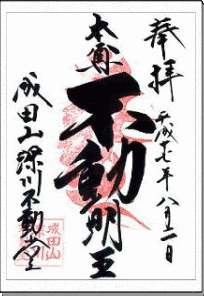 奉拝
平成十七年八月二日
本尊
不動明王
成田山深川不動堂
成田山